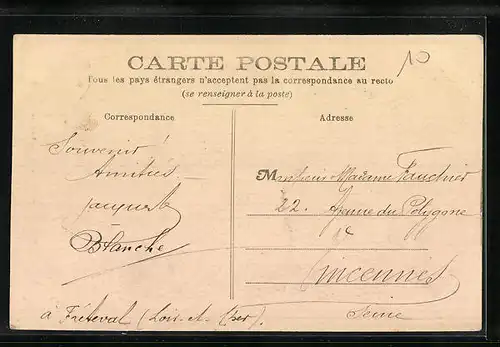 10
CARTE POSTALE
Tous les pays étrangers n'acceptent pas la correspondance au recto
(se renseigner à la poste)
Correspondance
Souvenir
Amitiés
Blanche
à Fréteval (Loir-et-Cher).
Adresse
Monsieur Madame Fauchier
22. Avenue du Polygone
Vincennes
Seine